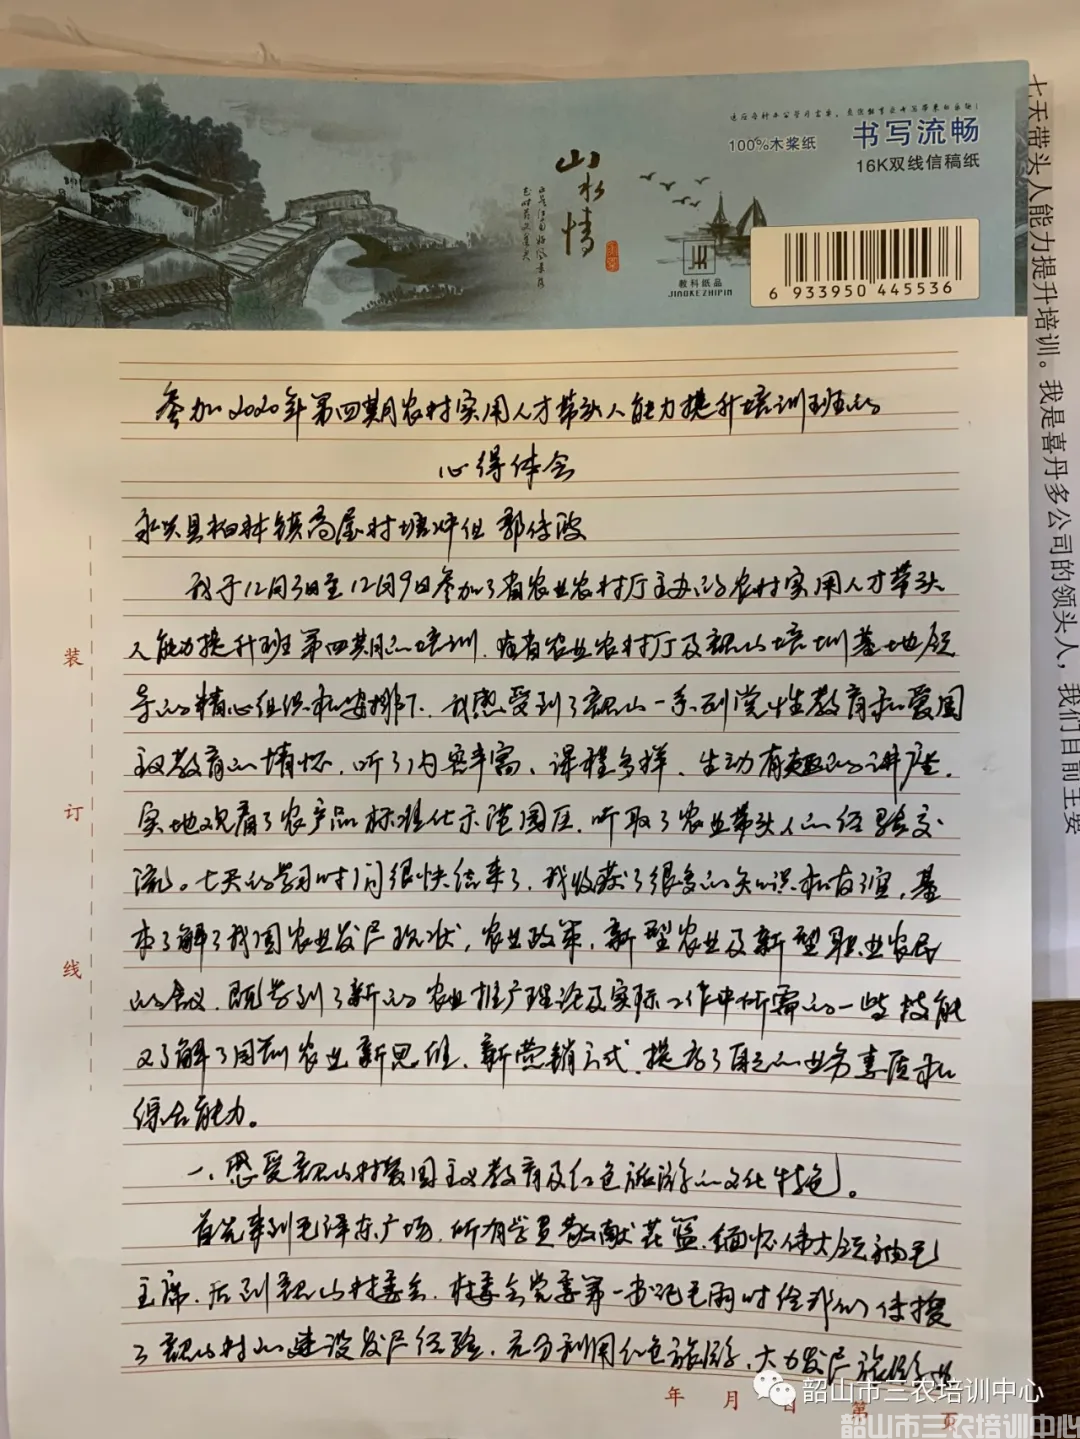 书写流畅
100%木桨纸
16K双线信稿纸
山水情
教科纸品
JIAOKEZHIPIN
6 933950 445536
七天带头人能力提升培训。我是喜丹多公司的领头人，我们目前主要
参加2020年第四期农村实用人才带头人能力提升培训班的
心得体会
永兴县柏林镇高屋村塘冲组 郭
我于12月3日至12月9日参加了省农业农村厅主办的农村实用人才带头
人能力提升班第四期的培训，在省农业农村厅及韶山培训基地领
导的精心组织和安排下，我感受到了韶山一系列党性教育和爱国
主义教育的情怀，听了内容丰富、课程多样、生动有趣的讲座，
实地观看了农产品标准化示范园区，听取了农业带头人的经验交
流。七天的学习时间很快结束了，我收获了很多的知识和友谊，基
本了解了我国农业发展现状，农业政策，新型农业及新型职业农民
的含义，既学到了新的农业推广理论及实际工作中所需的一些技能
又了解了周前农业新思维、新营销方式，提高了自己的业务素质和
综合能力。
一、感受韶山村爱国主义教育及红色旅游的文化特色。
首先来到毛泽东广场，所有学员敬献花篮，缅怀伟大领袖毛
主席，后到韶山村委会，村委会党委第一书记毛雨时给我们传授
了韶山村的建设发展经验，充分利用红色旅游，大力发展旅游业
装
订
线
年 月 日 第 页
韶山市三农培训中心
韶山市三农培训中心